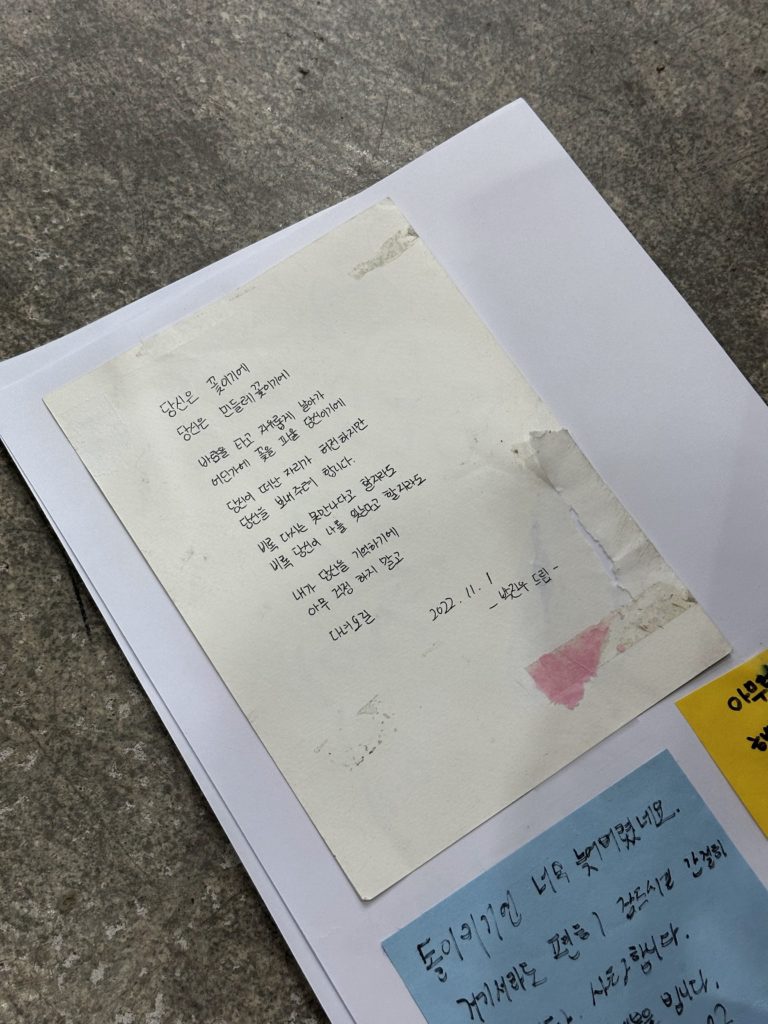 당신은 꽃이기에
당신은 민들레 꽃이기에
바람을 타고 자유롭게 날아가
어딘가에 꽃을 피울 당신이기에
당신이 떠난 자리가 허전하지만
당신을 보내주려 합니다.
비록 다시는 못만나다고 할지라도
비록 당신이 나를 잊는다고 할지라도
내가 당신을 기억하기에
아무 걱정 하지 말고
다녀오길
2022. 11. 1
- 박진우 드림 -
아무
돌이키기엔 너무 늦어버렸네요.
거기서라도 편히 잠드시고 간절히
사랑합니다.